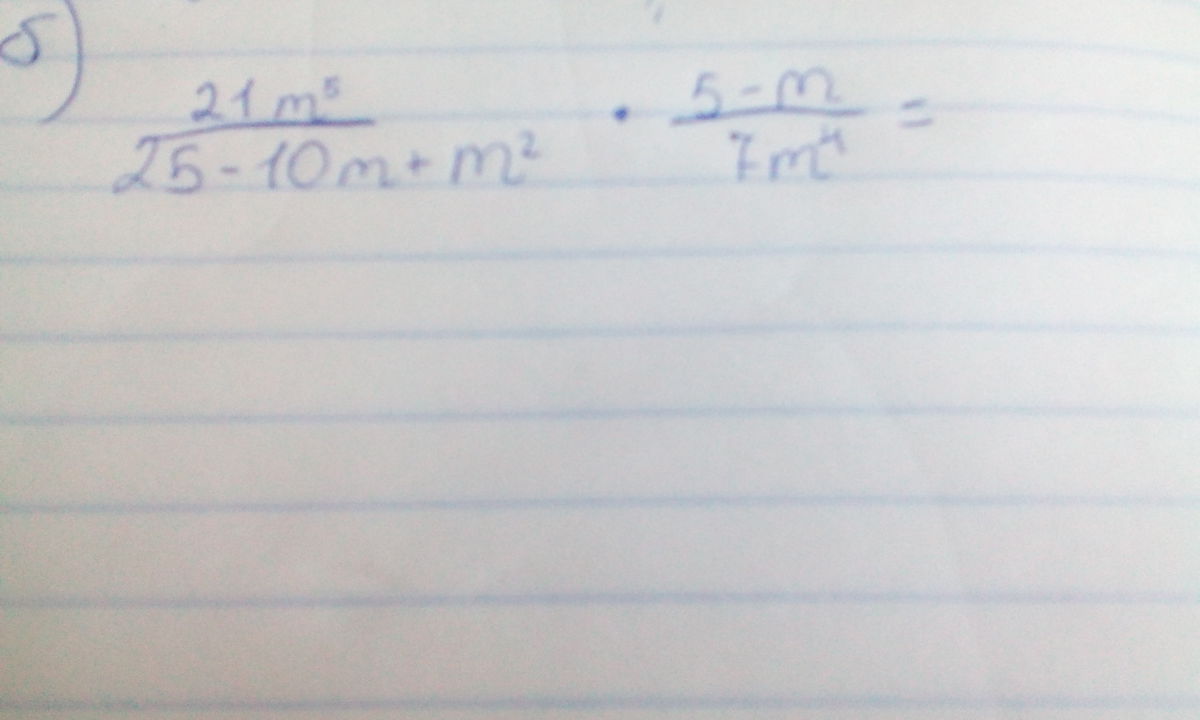 б)
21m⁵ / 25-10m+m² · 5-m / 7m⁴ =